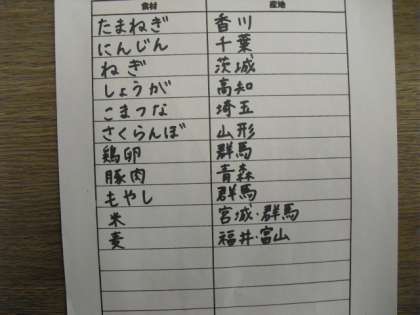 食材 産地
たまねぎ 香川
にんじん 千葉
ねぎ 茨城
しょうが 高知
こまつな 埼玉
さくらんぼ 山形
鶏卵 群馬
豚肉 青森
もやし 群馬
米 宮城・群馬
麦 福井・富山